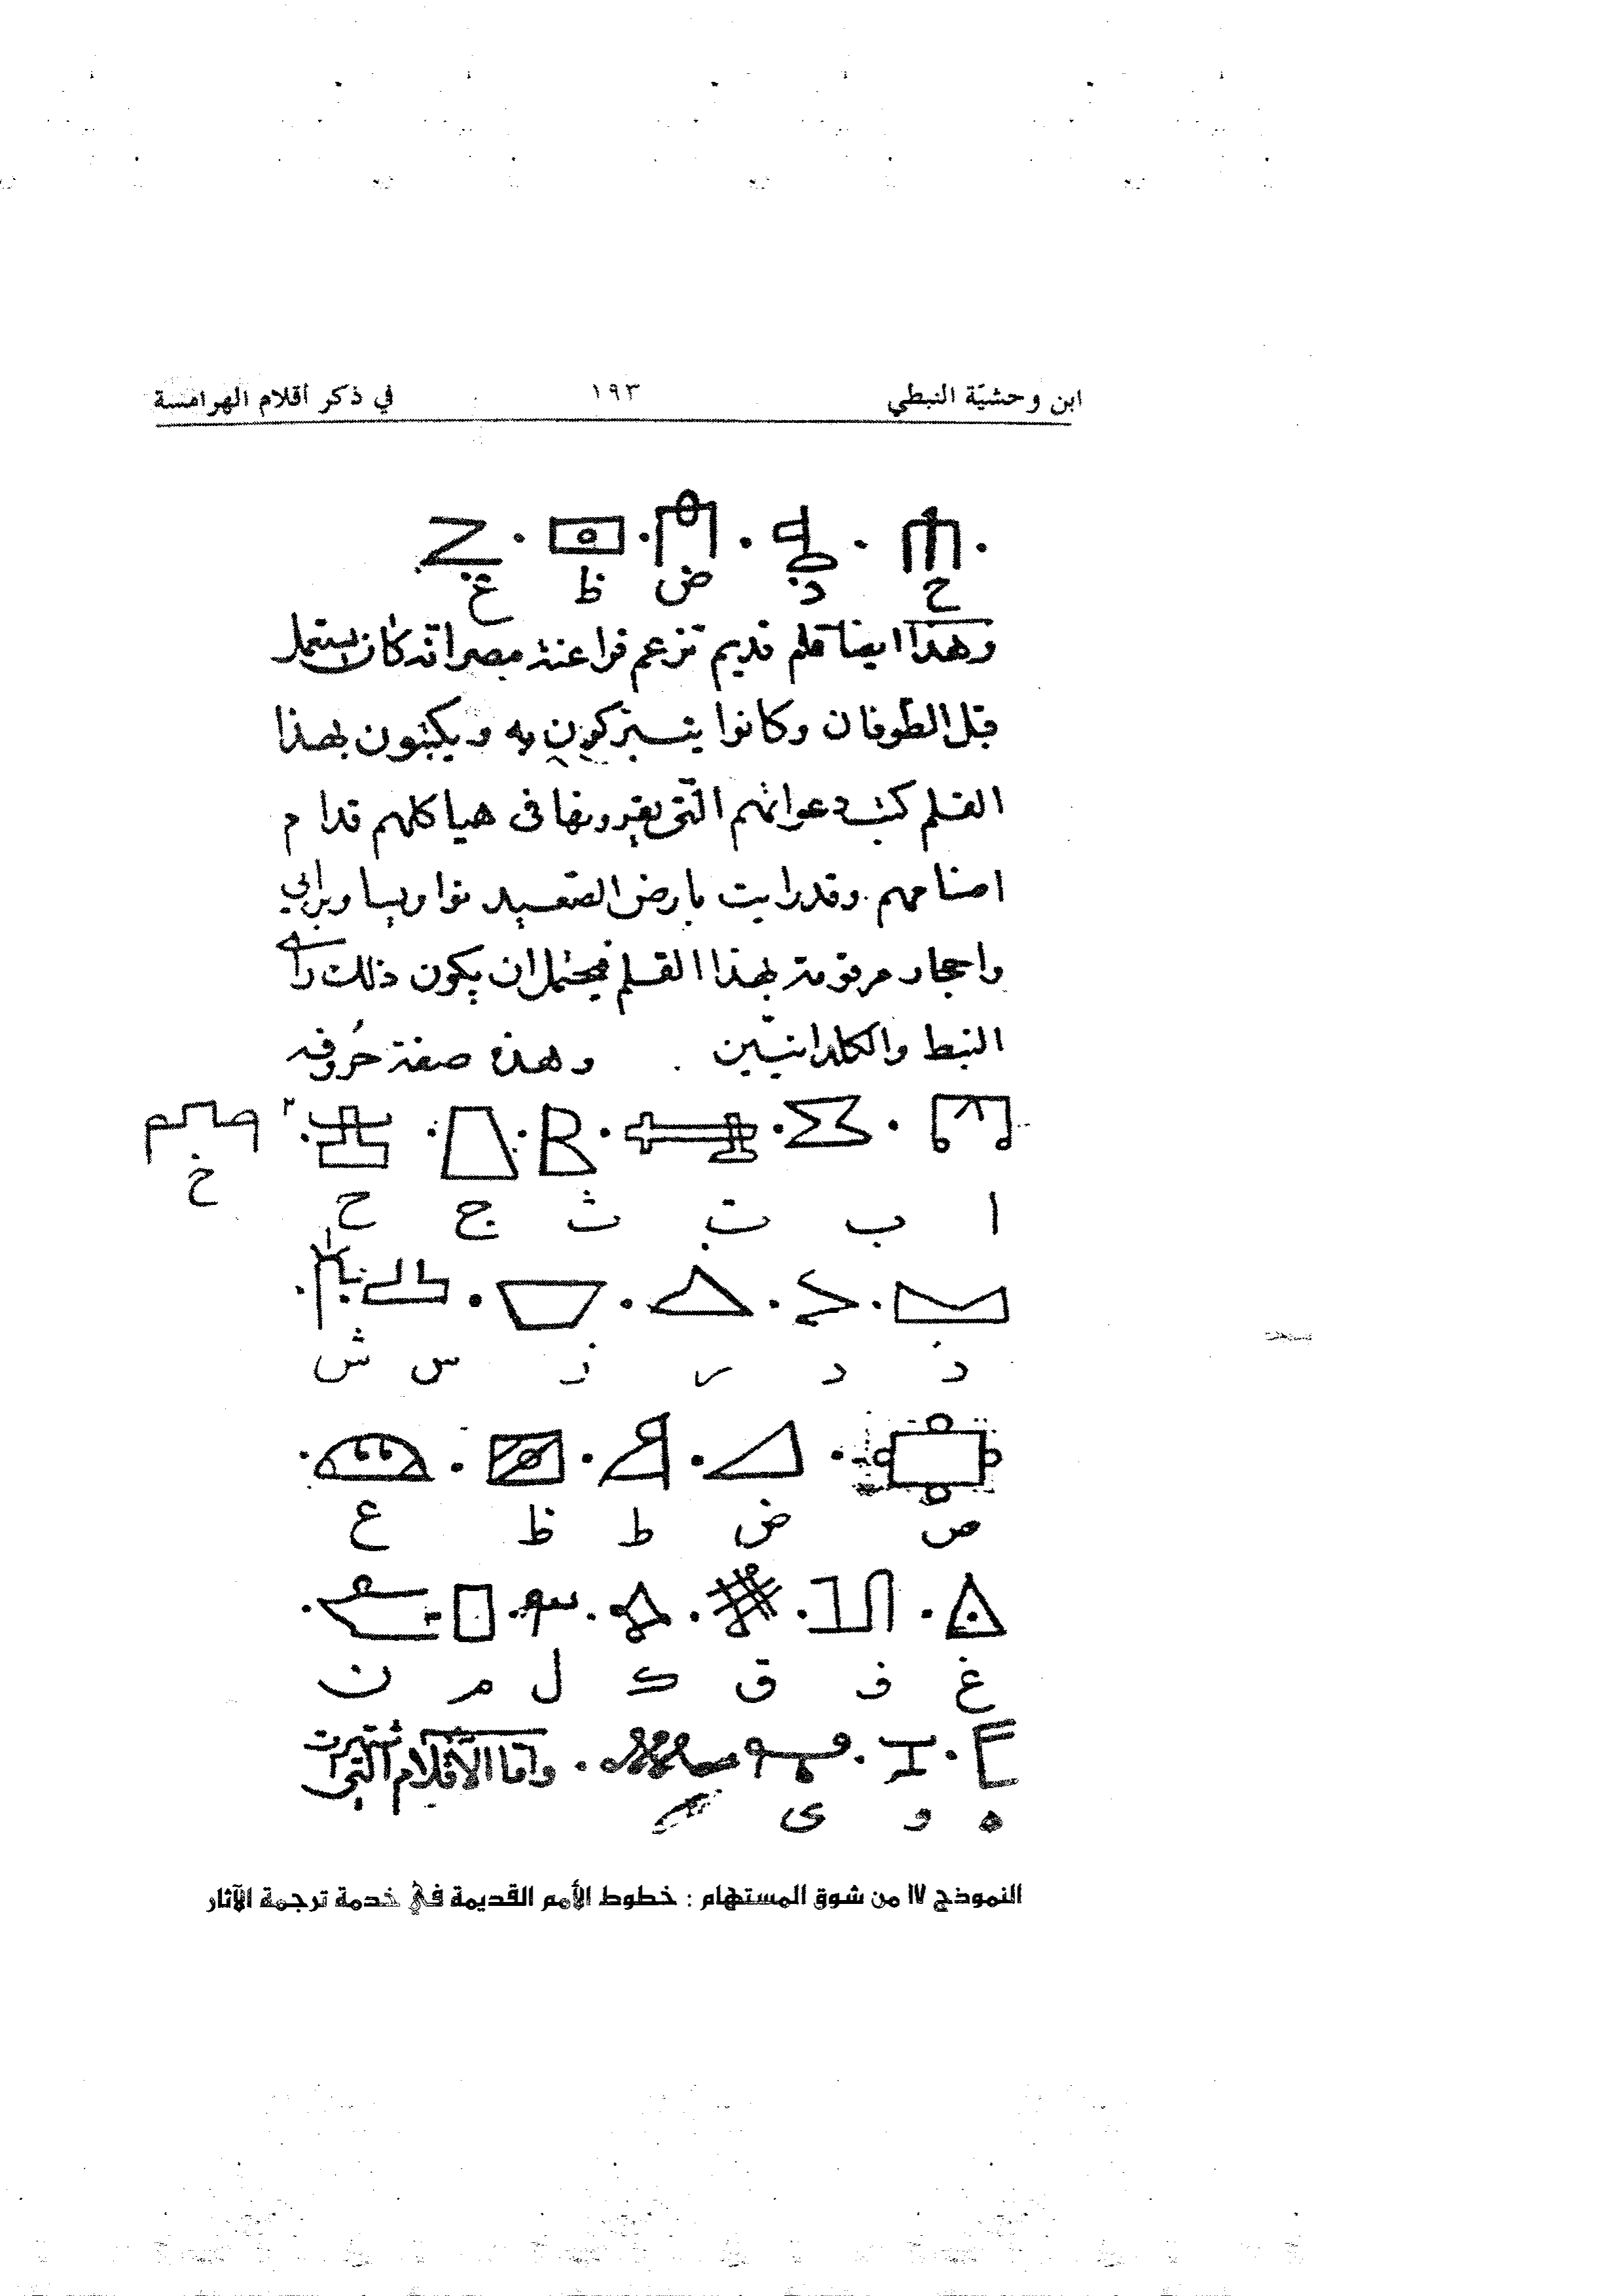 ابن وحشيّة النبطي ١٩٣ في ذكر أقلام الهرامسة
خ ذ ض ظ غ
وهذا ايضا قلم قديم تزعم فراعنة مصر انّه كان يستعمل
قبل الطوفان وكانوا يتبركون به ويكتبون بهذا
القلم كتب دعواتهم التى يقرونها فى هياكلهم قدام
اصنامهم وقد رايت بارض الصعيد نواويسا وبرابي
واحجار مرقومة بهذا القلم فيحتمل ان يكون ذلك
النبط والكلدانيّين وهذه صفة حُروفه
ا ب ت ث ج ح خ
ذ د ر ز س ش
ص ض ط ظ ع
غ ف ق ك ل م ن
ه و ى وامّا الأقلام التي
النموذج ١٧ من شوق المستهام : خطوط الأمم القديمة في خدمة ترجمة الآثار